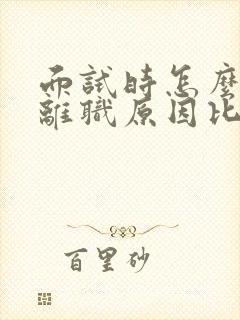 面試時怎麼
離職原因比
百里砂